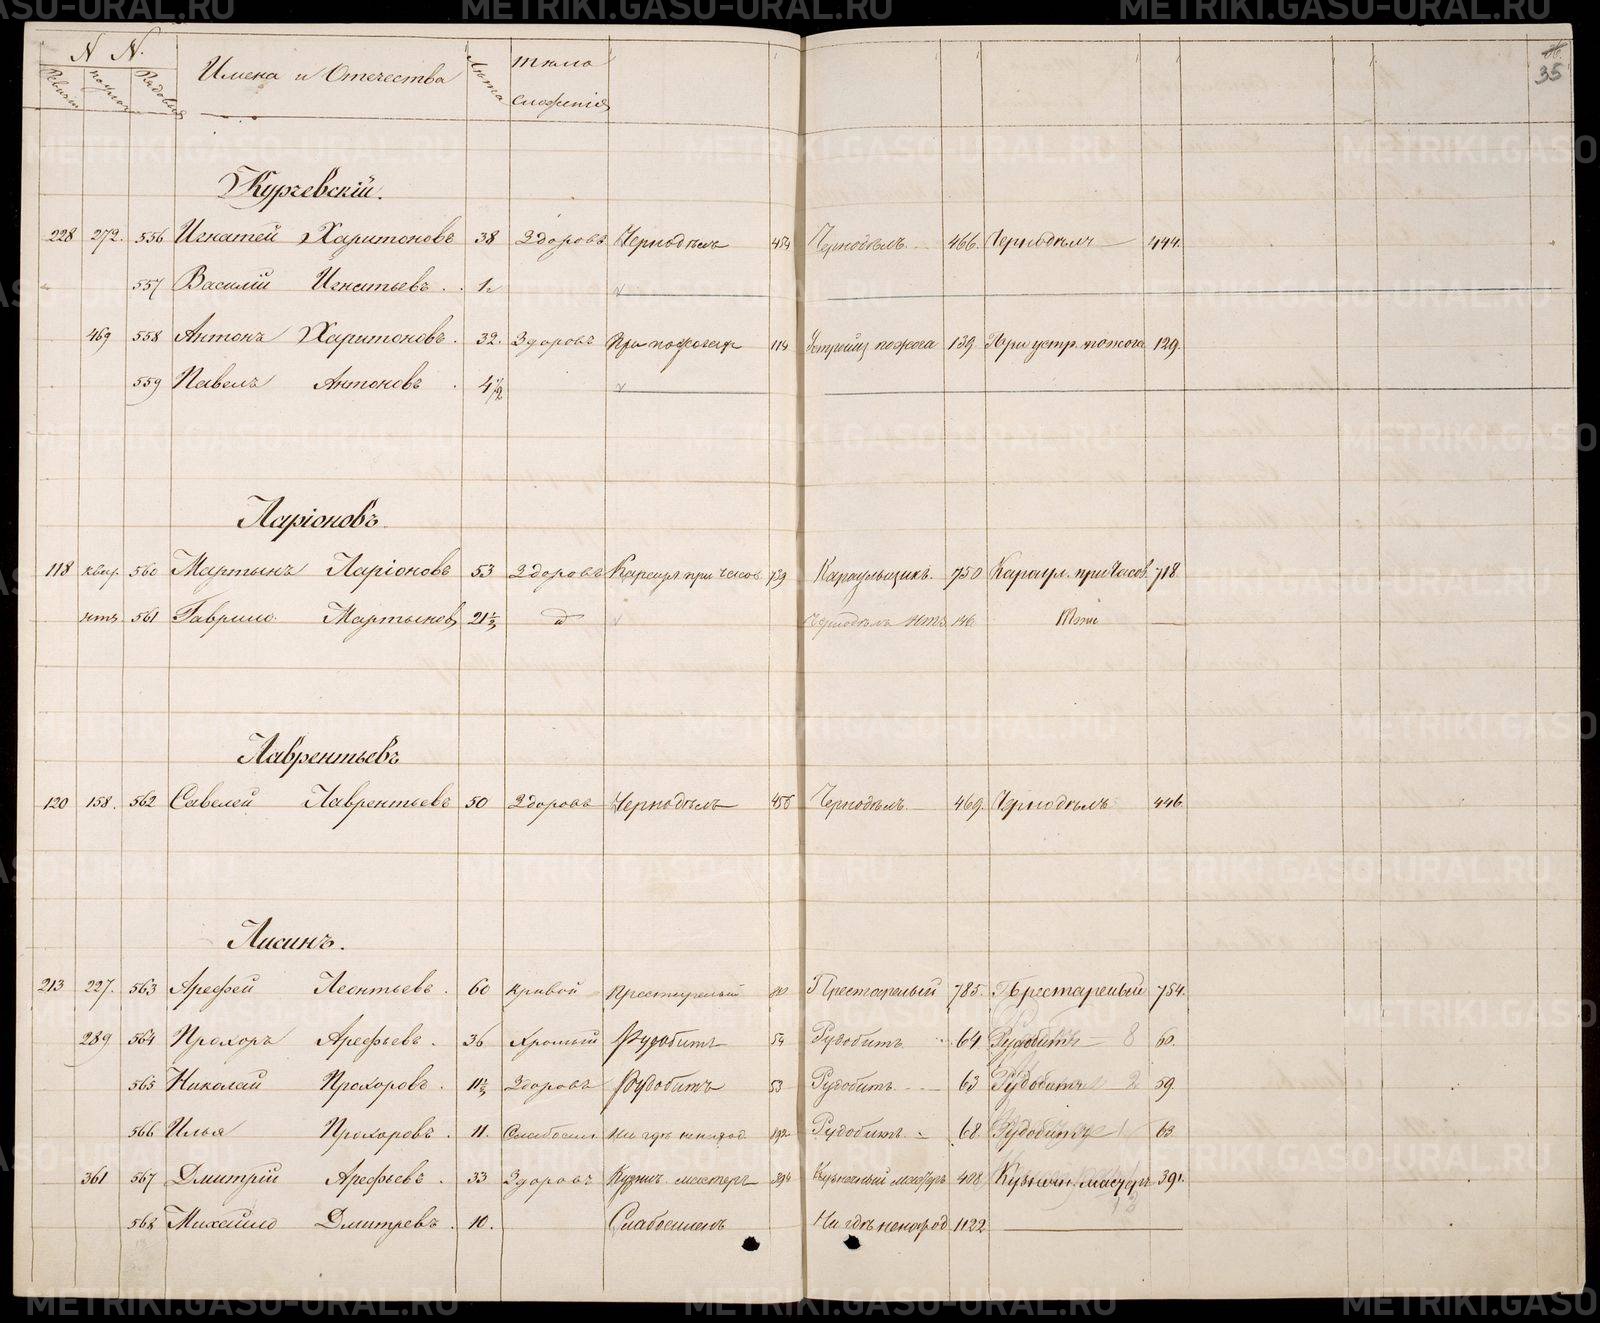 N N. Имена и Отечества Лѣта тѣло
Ревизіи Рядовыя сложенія
35
Курчевскій.
228 272. 556 Игнатей Харитоновъ 38 Здоровъ Чернодѣлъ 454 Чернодѣлъ 466. Чернодѣлъ 444.
557 Василій Игнатьевъ
469 558 Антонъ Харитоновъ. 32. Здоровъ При 114 пожога 139. При устр. пожога 129.
559 Павелъ Антоновъ 4½
Ларіоновъ.
118 560 Мартынъ Ларіоновъ 53 Здоровъ Караул при часов. 739 Караульщикъ. 750 Караул. при часов. 718.
561 Гаврило Мартыновъ Чернодѣлъ 146. Тоже
Лаврентьевъ
120 158. 562 Савелей Лаврентьевъ 50 Здоровъ Чернодѣлъ 456 Чернодѣлъ 469. Чернодѣлъ 446.
Лисинъ.
213 227. 563 Арефей Леонтьевъ. 60 Кривой Престарелый Престарелый 785. Престарелый 754.
289 564 Прохоръ Арефьевъ. 36 Хромый Рудобитъ 54 Рудобитъ 64 Рудобитъ 8 60.
565 Николай Прохоровъ. 11½ Здоровъ Рудобитъ 53 Рудобитъ 63 Рудобитъ 2 59.
566 Илья Прохоровъ. 11. Слабосил. Рудобитъ 68. Рудобитъ 63
361 567 Дмитрій Арефьевъ. 33 Здоровъ Кузнич. мастеръ 394 Кузнечный мастеръ 408 Кузнечн. мастеръ 391.
568 Михайло Дмитревъ. 10. Слабосиленъ Ни гдѣ ненаход 1122
METRIKI.GASO-URAL.RU